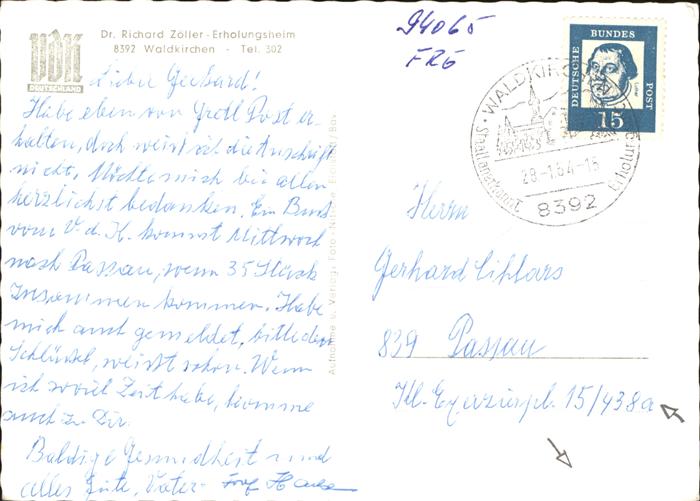 Dr. Richard Zoller-Erholungsheim
8392 Waldkirchen - Tel. 302
VDK
DEUTSCHLAND
Lieber Gerhard!
Habe eben von Gretl Post er-
halten, doch weiß ich die Anschrift
nicht. Möchte mich bei allen
herzlichst bedanken. Ein Bus
vom V. d. K. kommt Mittwoch
nach Passau, wenn 35 Stück
zusammen kommen. Habe
mich auch gemeldet, bitte den
Schlüssel, weißt schon. Wenn
ich soviel Zeit habe, komme
auch zu Dir.
Baldige Gesundheit und
alles Gute, Vater
Aufnahme u. Verlag: Foto
94065
FRG
DEUTSCHE BUNDESPOST
Luther
15
WALDKIRCHEN
Staatl. anerkannt. Erholung
28-1.64-15
8392
Herrn
Gerhard Cihlars
839 Passau
Kl. Exerzierpl. 15/438a